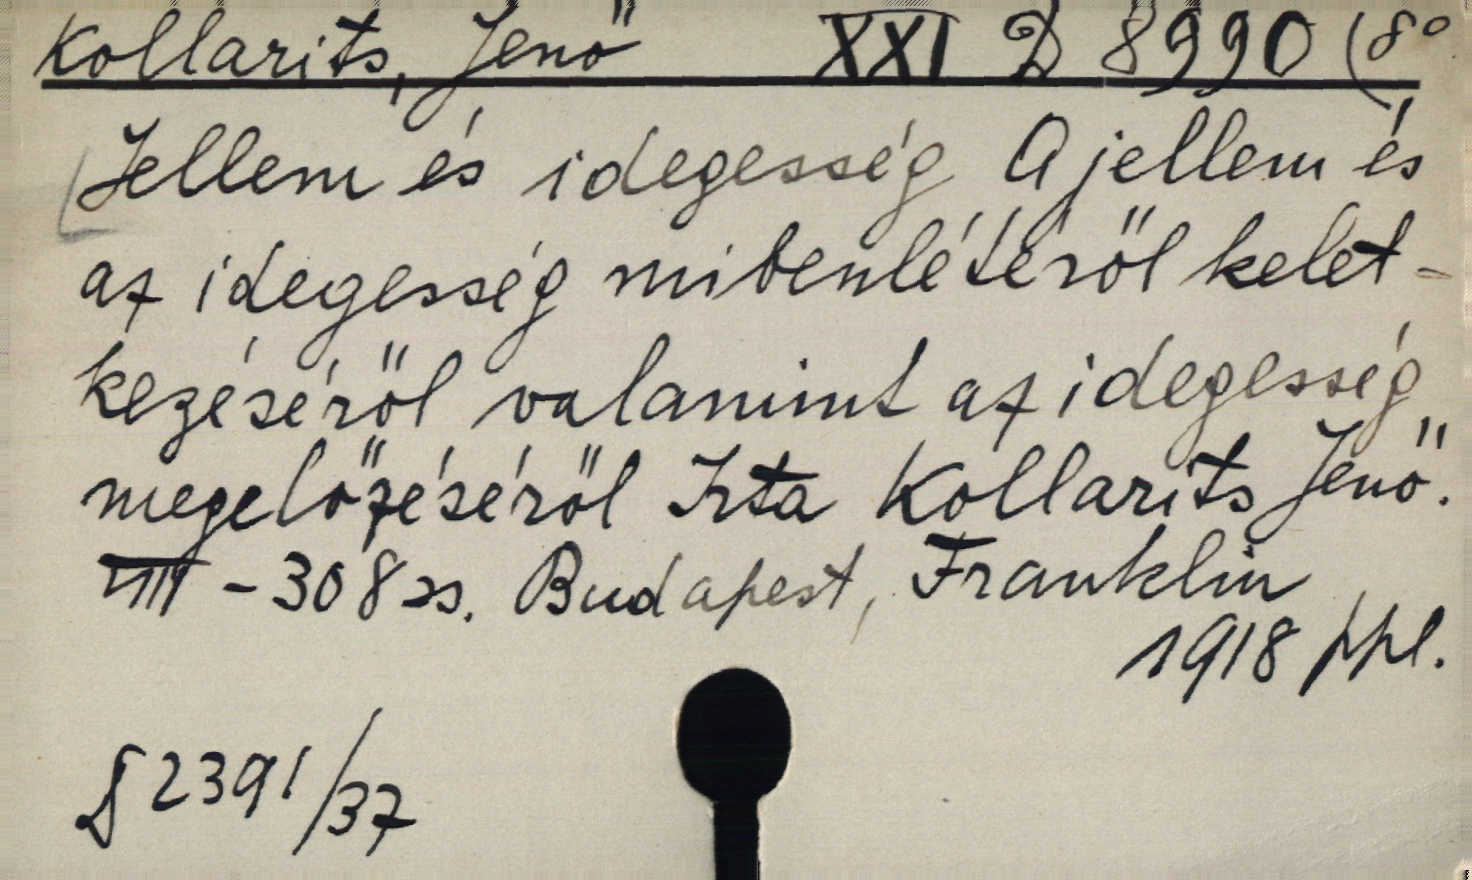 Kollarits, Jenő XXI D 8990 (8°
Jellem és idegesség A jellem és
az idegesség mibenlétéről kelet-
kezéséről valamint az idegesség
megelőzéséről Irta Kollarits Jenő.
VIII - 308 ss. Budapest, Franklin
1918 ppl.
§ 2391/37